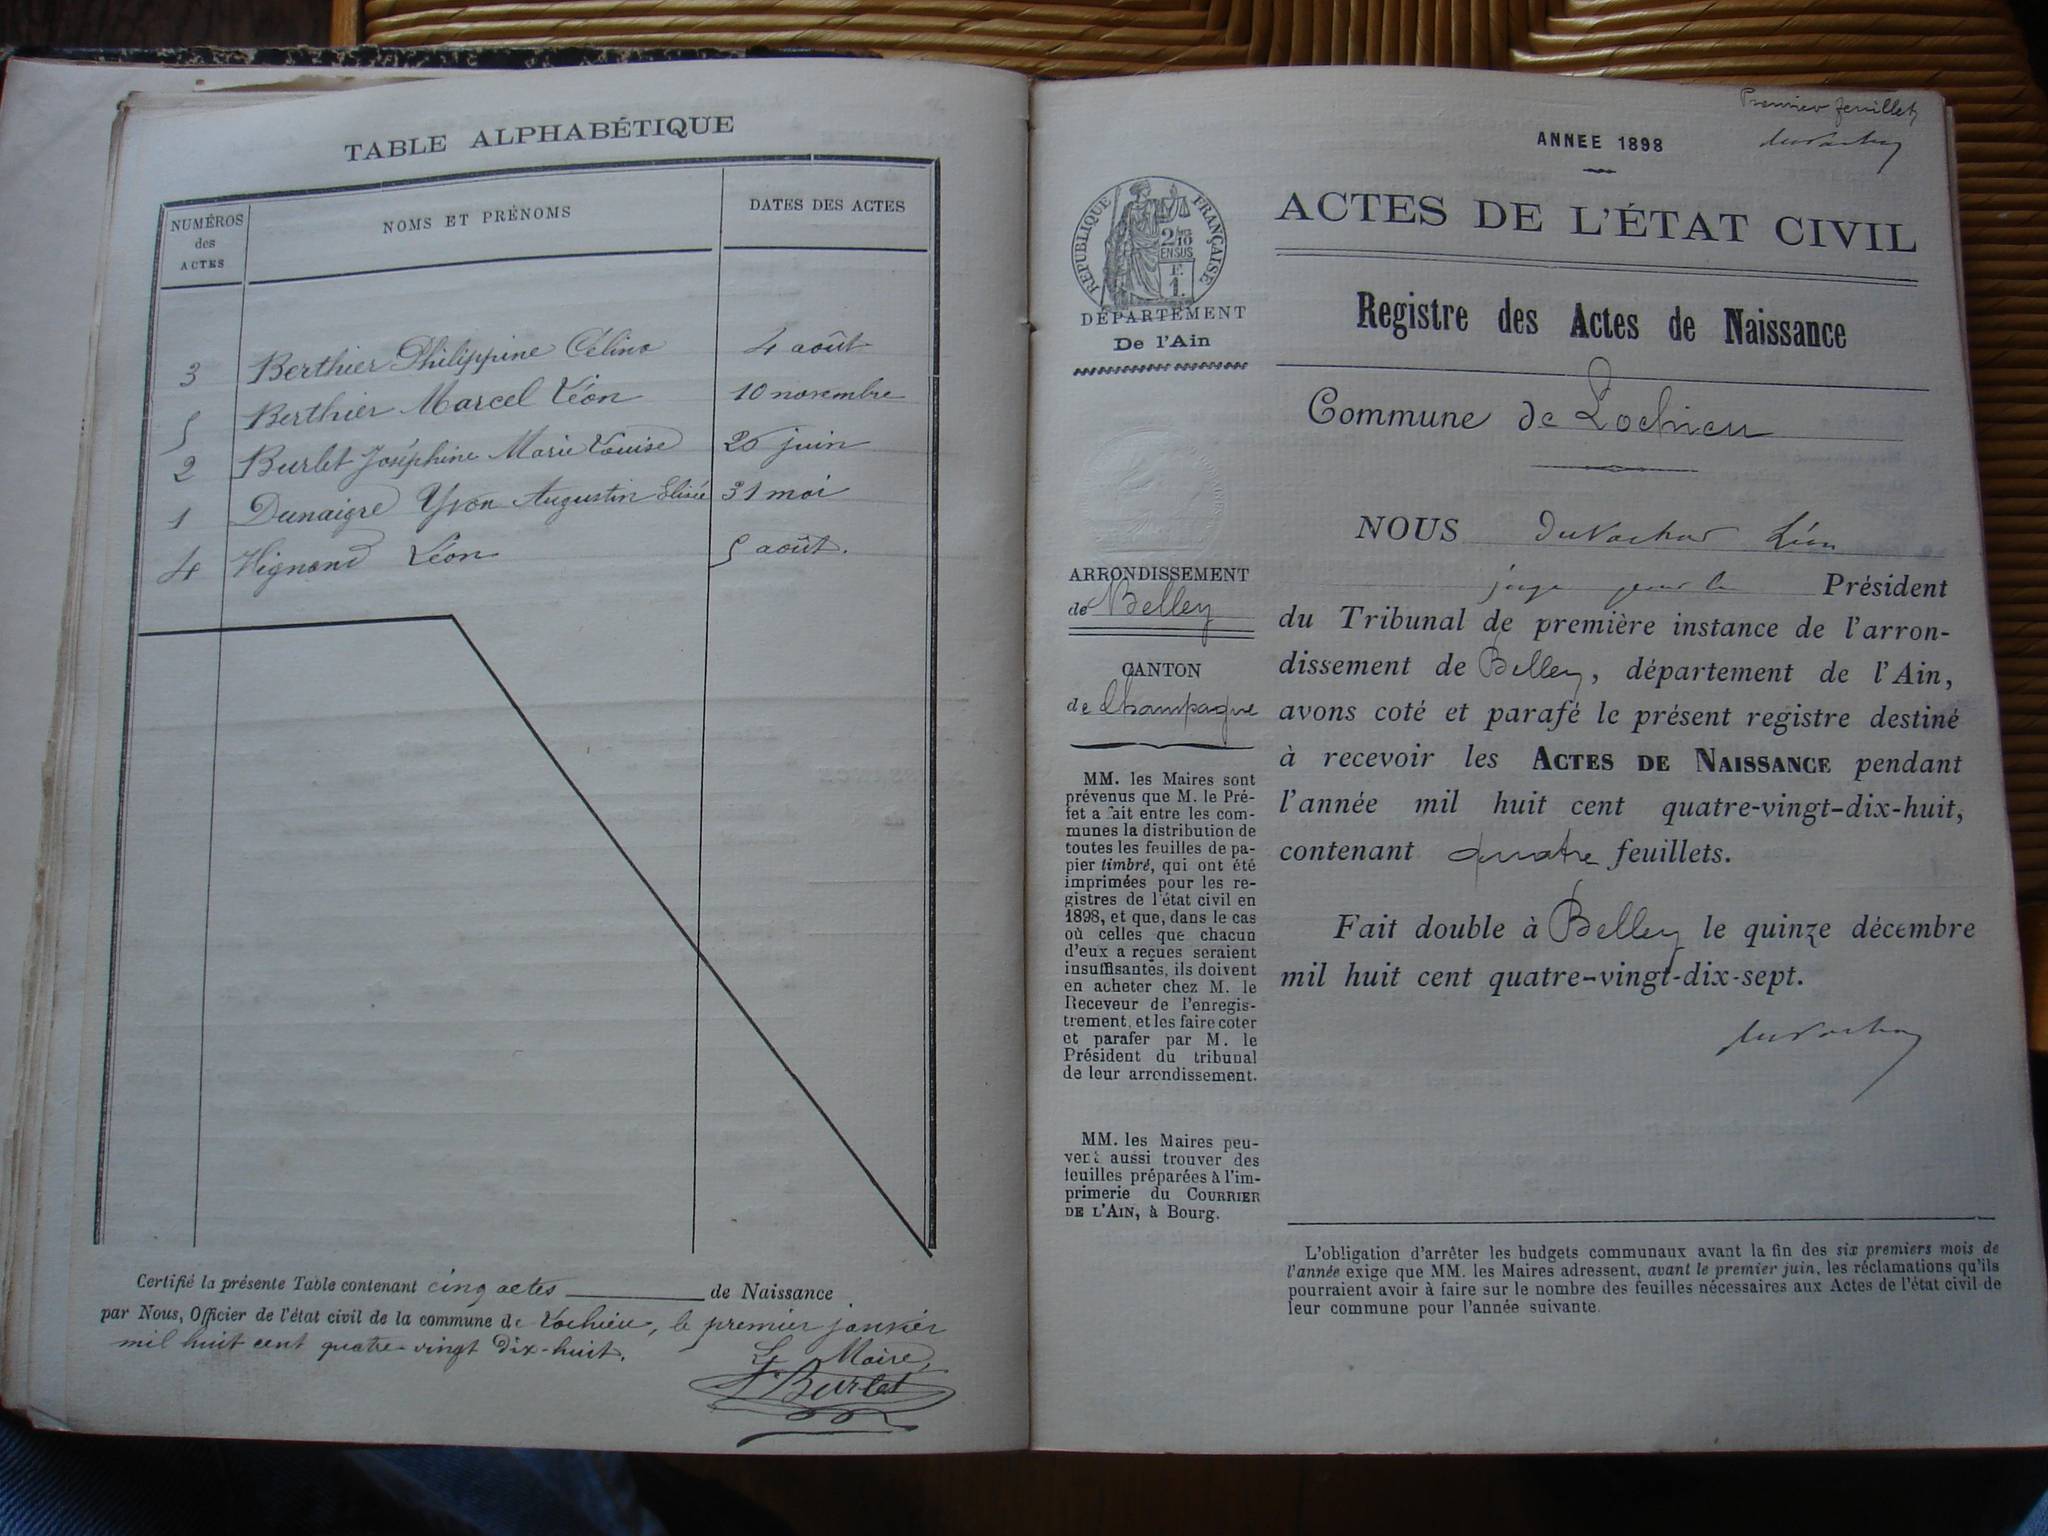 TABLE ALPHABÉTIQUE
NUMÉROS des ACTES
NOMS ET PRÉNOMS
DATES DES ACTES
3 Berthier Philippine Célina 4 août
5 Berthier Marcel Léon 10 novembre
2 Burlet Joséphine Marie Louise 26 juin
1 Dunaigre Yvon Augustin Elisée 31 mai
4 Vignand Léon 5 août.
Certifié la présente Table contenant cinq actes de Naissance
par Nous, Officier de l'état civil de la commune de Lochieu, le premier janvier
mil huit cent quatre-vingt dix-huit.
Le Maire,
Burlet
Premier feuillet
ANNEE 1898
ACTES DE L'ÉTAT CIVIL
RÉPUBLIQUE FRANÇAISE
2/10
EN SUS
F.
1.
DÉPARTEMENT
De l'Ain
Registre des Actes de Naissance
Commune de Lochieu
ARRONDISSEMENT
de Belley
CANTON
de Champagne
MM. les Maires sont
prévenus que M. le Pré-
fet a fait entre les com-
munes la distribution de
toutes les feuilles de pa-
pier timbré, qui ont été
imprimées pour les re-
gistres de l'état civil en
1898, et que, dans le cas
où celles que chacun
d'eux a reçues seraient
insuffisantes, ils doivent
en acheter chez M. le
Receveur de l'enregis-
trement, et les faire coter
et parafer par M. le
Président du tribunal
de leur arrondissement.
MM. les Maires peu-
vent aussi trouver des
feuilles préparées à l'im-
primerie du COURRIER
DE L'AIN, à Bourg.
NOUS Léon
juge pour le Président
du Tribunal de première instance de l'arron-
dissement de Belley, département de l'Ain,
avons coté et parafé le présent registre destiné
à recevoir les ACTES DE NAISSANCE pendant
l'année mil huit cent quatre-vingt-dix-huit,
contenant quatre feuillets.
Fait double à Belley le quinze décembre
mil huit cent quatre-vingt-dix-sept.
L'obligation d'arrêter les budgets communaux avant la fin des six premiers mois de
l'année exige que MM. les Maires adressent, avant le premier juin, les réclamations qu'ils
pourraient avoir à faire sur le nombre des feuilles nécessaires aux Actes de l'état civil de
leur commune pour l'année suivante.